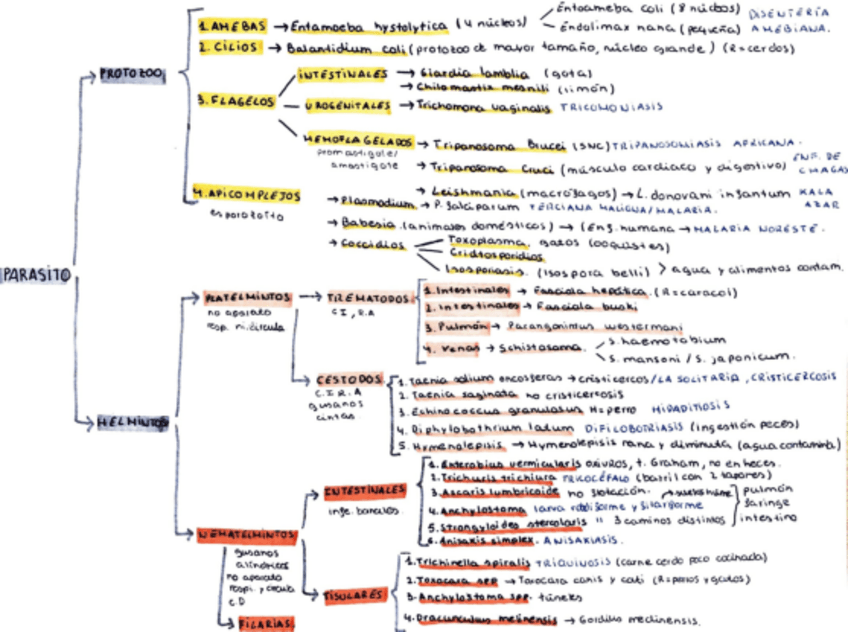 PARASITO
PROTOZOO
1. AMEBAS → Entamoeba hystolytica (4 núcleos)
Entoameba coli (8 núcleos)
Endolimax nana (pequeña)
DISENTERÍA
AMEBIANA.
2. CILIOS → Balantidium coli (protozoo de mayor tamaño, núcleo grande) (R=cerdos)
3. FLAGELOS
INTESTINALES → Giardia lamblia (gota)
→ Chilomastix mesnili (limón)
UROGENITALES → Trichomona vaginalis TRICOMONIASIS
HEMOFLAGELADOS
promastigote/
amastigote
→ Tripanosoma Brucei (SNC) TRIPANOSOMIASIS AFRICANA.
→ Tripanosoma Cruci (músculo cardiaco y digestivo) ENF. DE
CHAGAS
→ Leishmania (macrófagos) → L. donovani infantum KALA
AZAR
4. APICOMPLEJOS
esporozoito
→ Plasmodium → P. falciparum TERCIANA MALIGNA/MALARIA.
→ Babesia (animales domésticos) → (Enf. humana → MALARIA NORESTE.
→ Coccidios
Toxoplasma. gatos (ooquistes)
Cridtosporidios
Isosporiasis. (Isospora belli) > agua y alimentos contam.
HELMINTOS
PLATELMINTOS
no aparato
resp. ni circula
→ TREMATODOS
C.I, R.A
1. Intestinales → Fasciola hepática. (R=caracol)
2. Intestinales → Fasciola buski
3. Pulmón → Paragonimus westermani
4. Venas → Schistosoma.
s. haematobium
s. mansoni / s. japonicum.
CESTODOS
C.I.R.A
gusanos
cintas
1. Taenia solium → cristicercos/LA SOLITARIA, CRISTICERCOSIS
2. Taenia saginata no cristicercosis
3. Echinococcus granulosus H=perro HIDATIDOSIS
4. Diphylobothrium latum DIFILOBOTRIASIS (ingestión peces)
5. Hymenolepisis → Hymenolepisis nana y diminuta (agua contamina)
NEMATELMINTOS
gusanos
cilíndricos
no aparato
resp. y circula
C.D
INTESTINALES
1. Enterobius vermicularis OXIUROS, t. Graham, no en heces.
2. Trichuris trichiura TRICOCÉFALO (barril con 2 tapones)
3. Ascaris lumbricoide no flotación.
4. Anchylostoma larva rabdiforme y filariforme
5. Strongyloides stercolaris " 3 caminos distintos
pulmón
faringe
intestino
6. Anisakis simplex. ANISAKIASIS.
TISULARES
1. Trichinella spiralis TRIQUINOSIS (carne cerdo poco cocinada)
2. Toxocara spp → Toxocara canis y cati (R=perros y gatos)
3. Anchylostoma spp. túneles
4. Dracunculus medinensis → Gordius medinensis.
FILARIAS